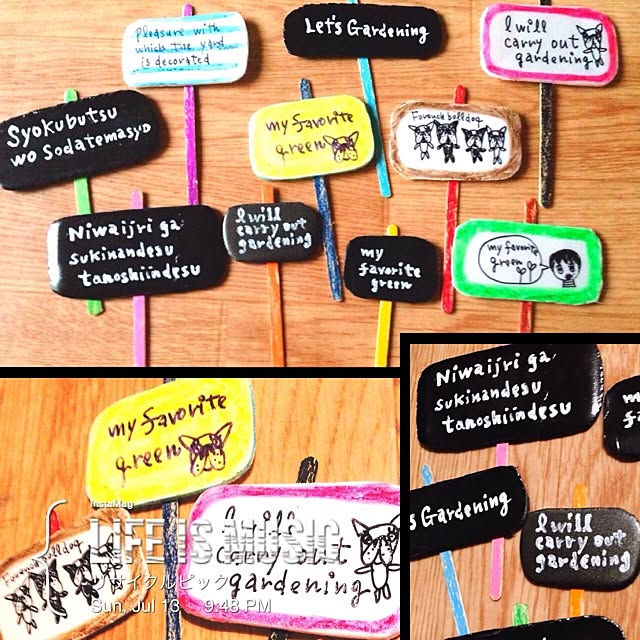 Pleasure with
which the yard
is decorated
Let's Gardening
I will
carry out
gardening
Syokubutsu
wo Sodatemasyo
my favorite
green
Forench bolldog
Niwaijri ga
sukinandesu
tanoshiindesu
I will
carry out
gardening
my
favorite
green
my favorite
green
my favorite
green
I will
carry out
gardening
Forench bolldog
InstaMag
LIFE IS MUSIC
リサイクルピック
Sun, Jul 13 9:48 PM
Niwaijri ga
sukinandesu
tanoshiindesu
s Gardening
I will
carry out
gardening